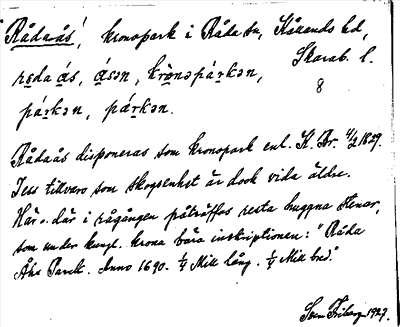 Rådaås, kronopark i Råda sn, Kållands hd,
Skarab. l.
reda ás, ásən, krònəpárkən,
8
párkən, párkən.
Rådaås disponeras som kronopark enl. K. Br. 4/2 1829.
Dess tillvaro som skogsenhet är dock vida äldre.
Här o. där i rågången påträffas resta huggna stenar,
som under kungl. krona bära inskriptionen: "Råda
Åhs Parck. Anno 1690. 1/4 Mill lång. 1/4 Mill bred."
Sven Friberg 1927.